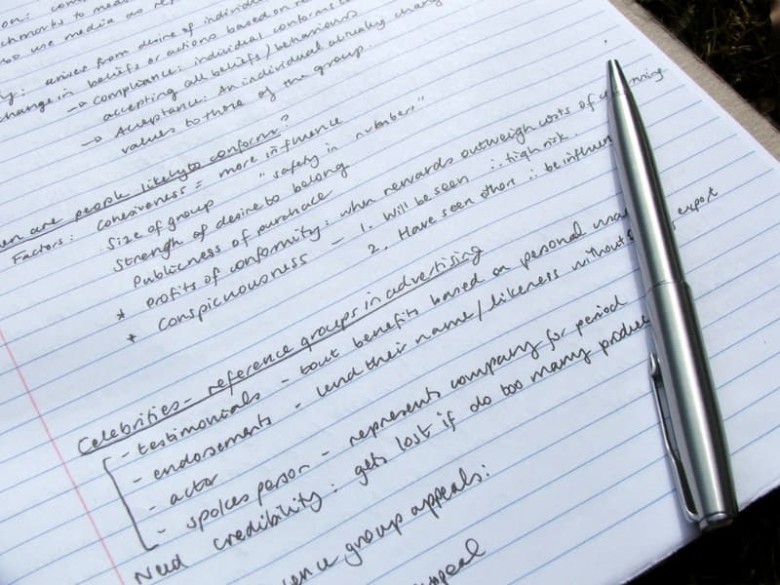 on: com
chmarks to mea
so use media as re
ty: arises from desire of individu
change in beliefs or actions based on r
→ Compliance: individual conforms
accepting all beliefs/behaviours
→ Acceptance: An individual actually chang
values to those of the group.
en are people likely to conform?
Factors: Cohesiveness = more influence
Size of group "safety in numbers"
Strength of desire to belong
Publicness of purchase
* Profits of conformity: when rewards outweigh costs of
* Conspicuousness - 1. Will be seen ∴ high risk.
2. Have seen others ∴ be influen
Celebrities - reference groups in advertising
- testimonials - tout benefits based on personal usa
- endorsements - lend their name/likeness without expert
- actor
- spokesperson - represents company for period
Need credibility: gets lost if do too many produc
ence group appeals:
peal